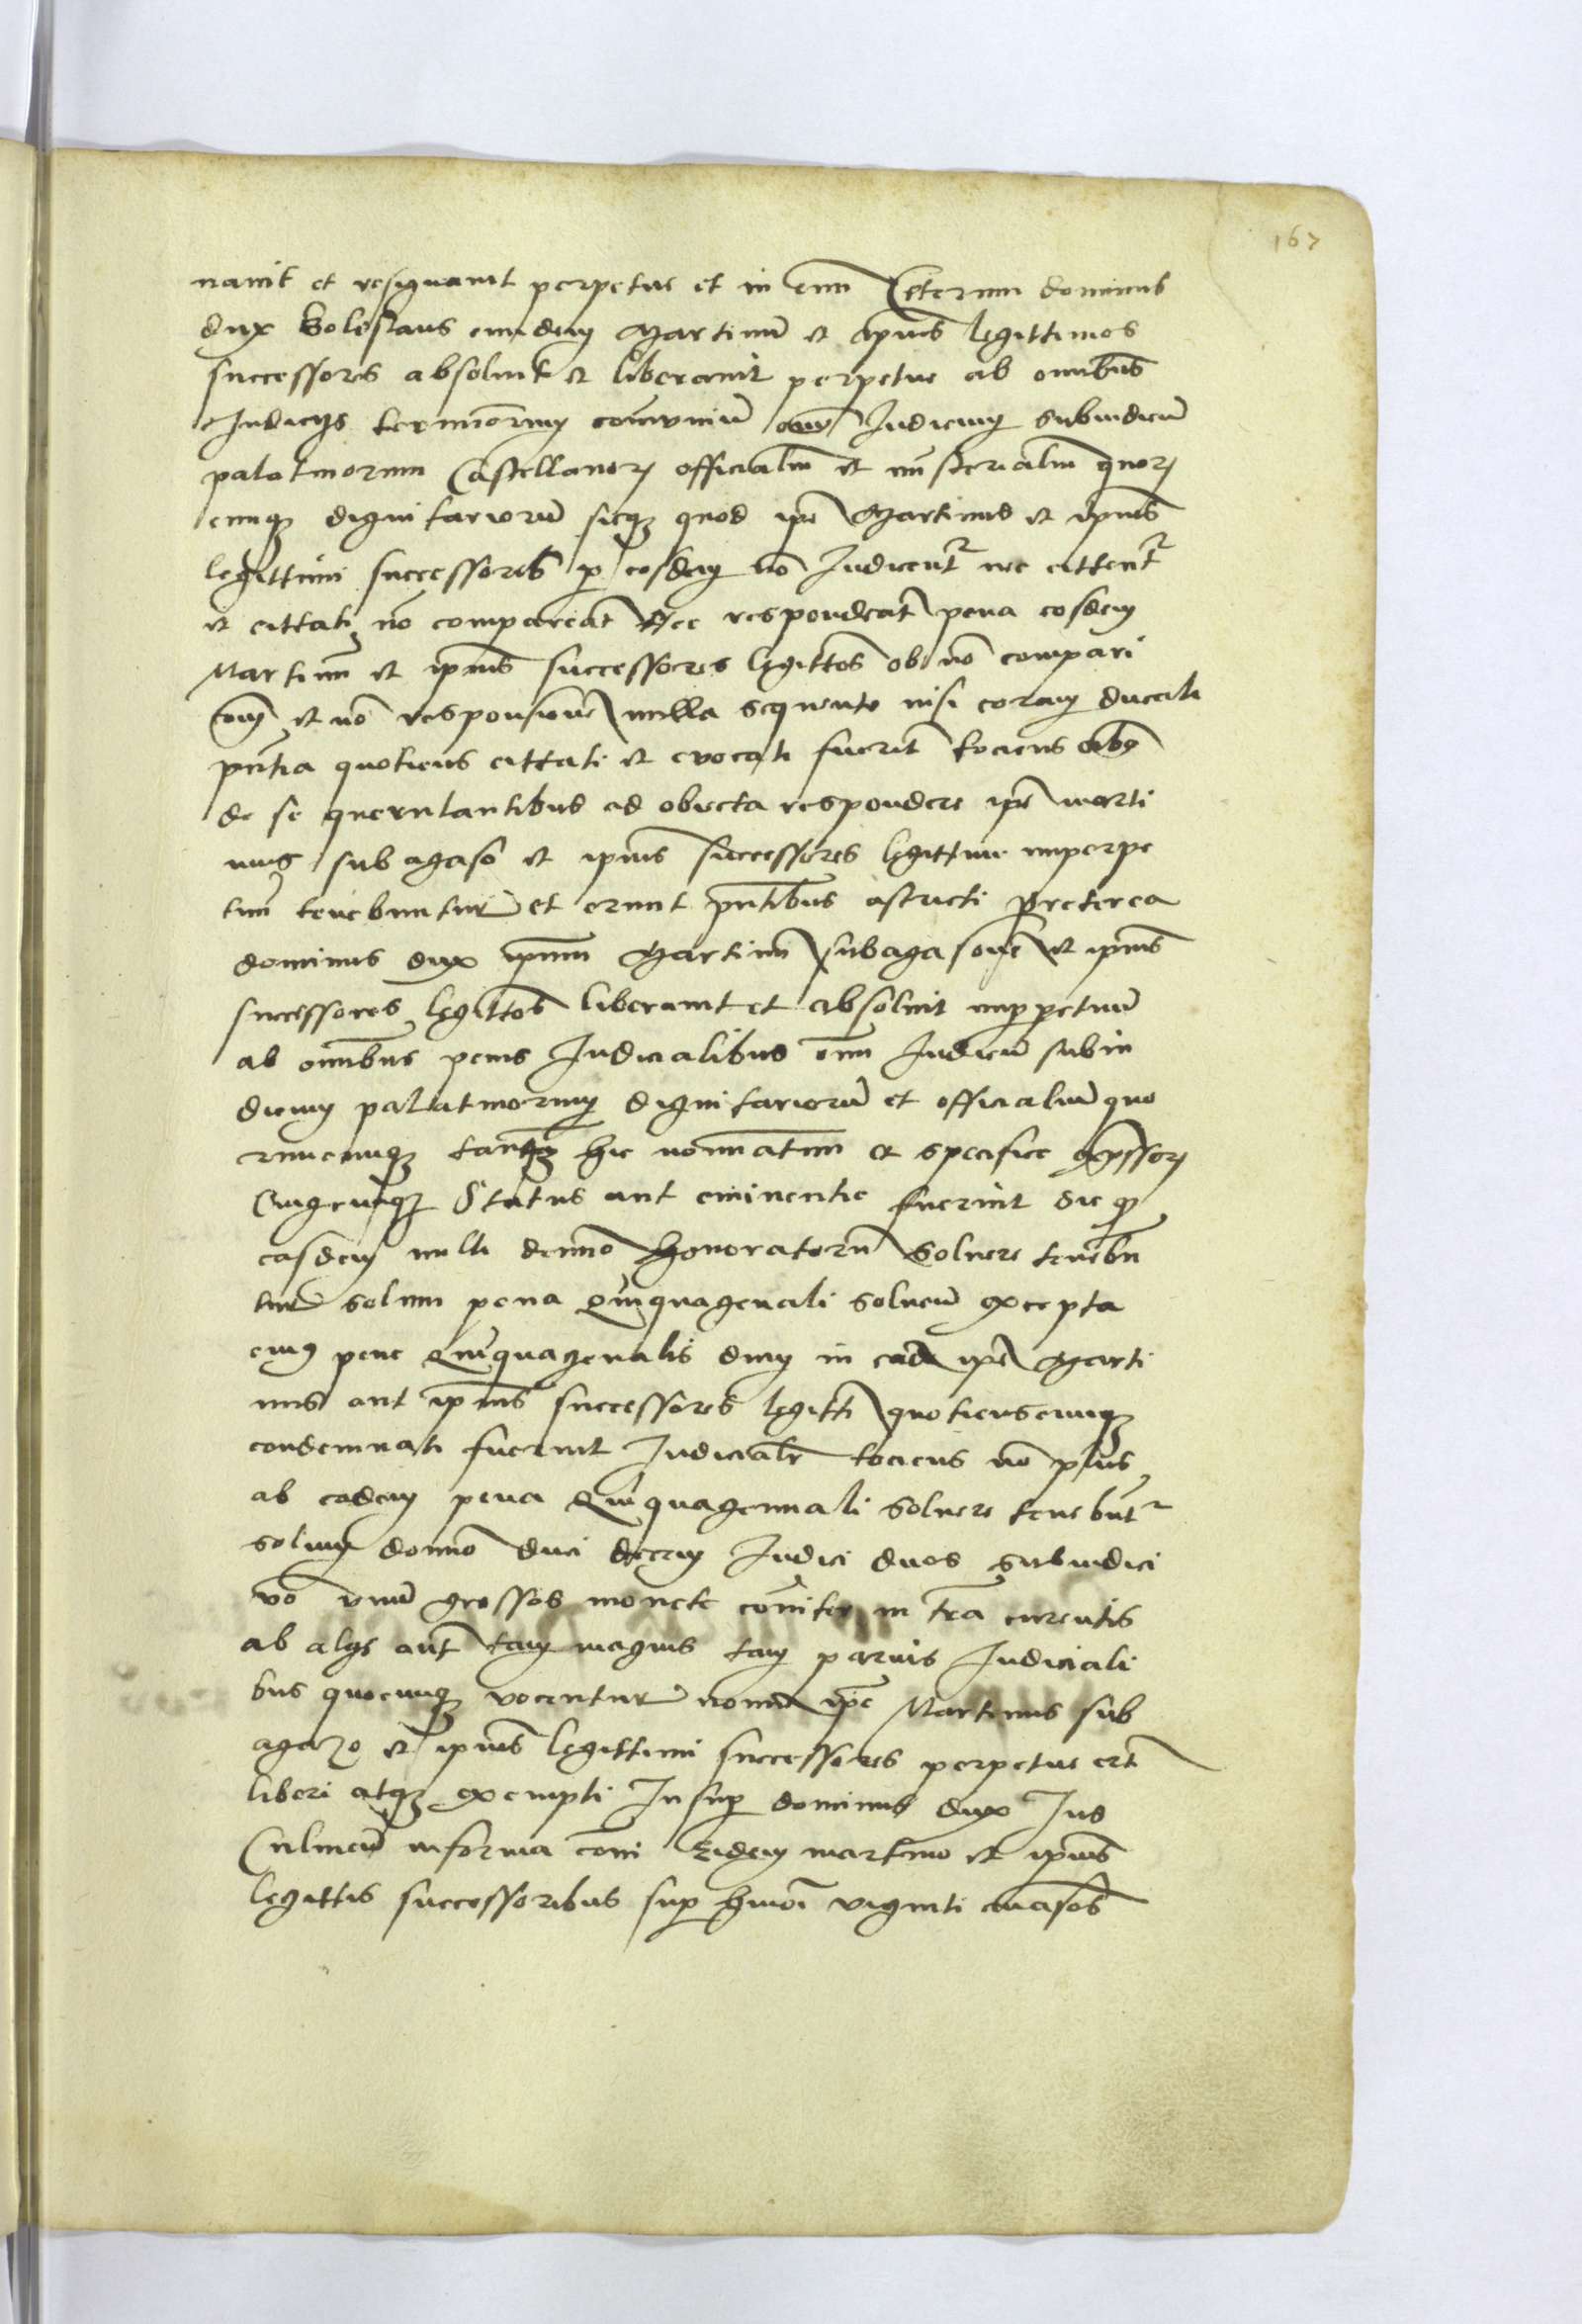 167
nauit et resignauit perpetue et in eum Ceterum dominus
dux Bolesłaus eundem Martinū et ipius legittimos
successores absoluit et liberauit perpetue ab omnibus
Iudicijs terminorum comuniū om̄ Iudicum subiudicū
palatinorum Castellanorꝝ officialiū et ministerialiū quorꝝ
cumqꝫ dignitariorū sicqꝫ quod ipe Martinus et ipius
legittimi successores ꝑ eosdem nō Iudicentr nec cittentr
et cittati nō compareāt Nec respondeāt pena eosdem
Martinū et ipius successores legittos ob nō compari
com̄ et nō responsione nulla sequente nisi coram ducali
pn̄tia quotiens cittati et euocati fuerīt tociens oībꝫ
de se querulantibus ad obiecta respondere ipe marti
nus subagaso et ipius successores legittimi imperpe
tuū tenebuntur et erunt pn̄tibus astricti Preterea
dominus dux ipum Martinū subagasonē et ipius
successores legittos liberauit et absoluit imꝑpetuū
ab omnibus penis Iudicialibus om̄ Iudicū subiu
dicum palatinorum dignitariorū et officialiū quo
rumcumqꝫ tanqꝫ hic nominatim et specifice expssorꝫ
Cuiuscumqꝫ Status aut eminentie fuerint sic qꝫ
easdem nulli demo honoratorū Soluere tenebū
tur solum pena quinquagenali soluenū excepta
cuiꝰ pene Quinquagenalis dum in eadē ipe Marti
nus aut ipius successores legitti quotienscumqꝫ
condemnati fuerint Iudicialr tociens nō plus
ab eadem pena Quinquagennali soluere tenebūtr
solum domino duci decem Iudici duos subiudici
vō vnū grossos monete com̄iter in tr̄a currentis
ab alijs aut tam magnis tam paruis Iudiciali
bus quocumqꝫ vocentur nomīe ipe Martinus sub
agazo et ipius legittimi successores perpetue ert
liberi atqꝫ exempti Insuꝑ dominus dux Ius
Culmeū in forma com̄i Eidem martino et ipius
legittis successoribus suꝑ hmōi viginti mansos